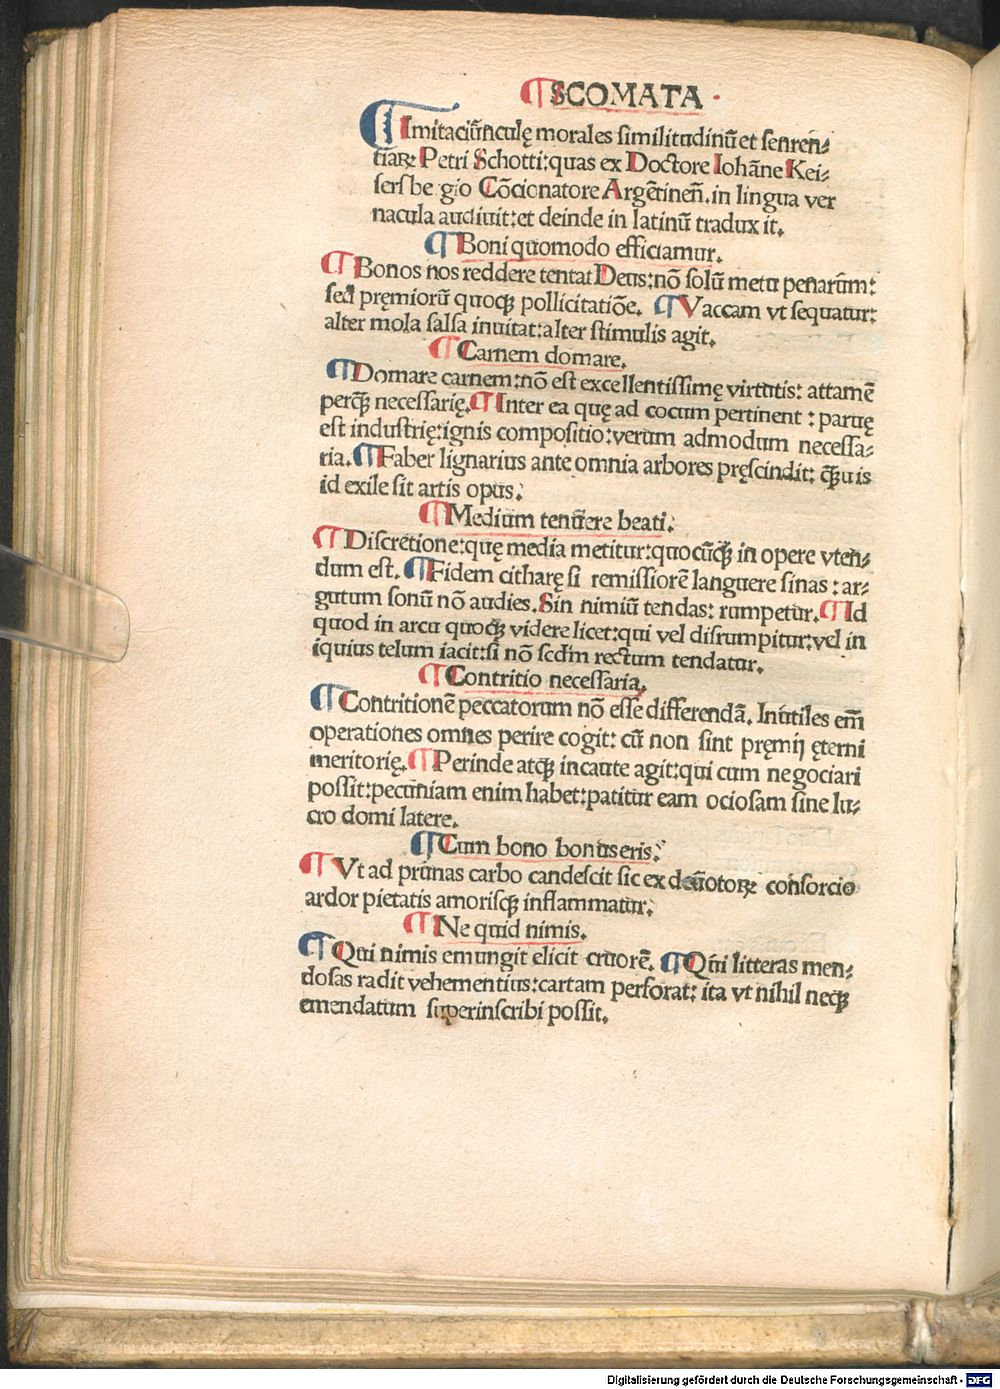 ¶SCOMATA
¶Imitaciūculę morales similitudinū et senten⸗
tiaꝝ Petri Schotti:quas ex Doctore Iohāne Kei⸗
sersbe gio Cōcionatore Argētineñ.in lingua ver
nacula audiuit:et deinde in latinū tradux it.
¶Boni quomodo efficiamur.
¶Bonos nos reddere tentat Deus:nō solū metu penarūm:
sed pręmiorū quoqꝫ pollicitatiōe. ¶Vaccam vt sequatur:
alter mola salsa inuitat:alter stimulis agit.
¶Carnem domare.
¶Domare carnem:nō est excellentissimę virtutis: attamē
perqꝫ necessarię.¶Inter ea quę ad cocum pertinent : paruę
est industrię:ignis compositio:verum admodum necessa⸗
ria.¶Faber lignarius ante omnia arbores pręscindit: qꝫuis
id exile sit artis opus:
¶Medium tenuere beati:
¶Discretione:quę media metitur:quocūqꝫ in opere vten⸗
dum est.¶Fidem citharę si remissiorē languere sinas : ar⸗
gutum sonū nō audies.Sin nimiū tendas: rumpetur.¶Id
quod in arcu quoqꝫ videre licet:qui vel disrumpitur:vel in
iquius telum iacit:si nō scđm rectum tendatur.
¶Contritio necessaria.
¶Contritionē peccatorum nō esse differendā. Inutiles em̄
operationes omnes perire cogit: cū non sint pręmij ęterni
meritorię.¶Perinde atqꝫ incaute agit:qui cum negociari
possit:pecuniam enim habet:patitur eam ociosam sine lu⸗
cro domi latere.
¶Cum bono bonus eris:
¶Vt ad prunas carbo candescit sic ex deuotoꝝ consorcio
ardor pietatis amorisqꝫ inflammatur:
¶Ne quid nimis.
¶Qui nimis emungit elicit cruorē. ¶Qui litteras men⸗
dosas radit vehementius:cartam perforat: ita vt nihil neqꝫ
emendatum superinscribi possit.
Digitalisierung gefördert durch die Deutsche Forschungsgemeinschaft - DFG